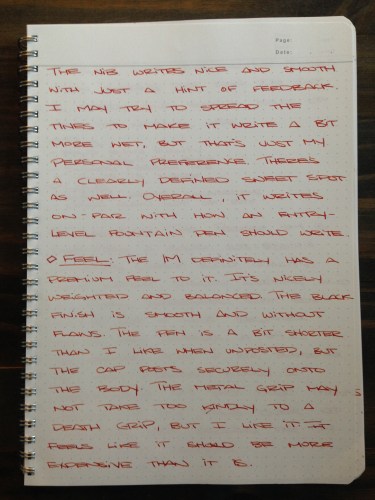 Page:
Date:
THE NIB WRITES NICE AND SMOOTH
WITH JUST A HINT OF FEEDBACK.
I MAY TRY TO SPREAD THE
TINES TO MAKE IT WRITE A BIT
MORE WET, BUT THAT'S JUST MY
PERSONAL PREFERENCE. THERE'S
A CLEARLY DEFINED SWEET SPOT
AS WELL. OVERALL, IT WRITES
ON-PAR WITH HOW AN ENTRY-
LEVEL FOUNTAIN PEN SHOULD WRITE.
◇ FEEL: THE IM DEFINITELY HAS A
PREMIUM FEEL TO IT. IT'S NICELY
WEIGHTED AND BALANCED. THE BLACK
FINISH IS SMOOTH AND WITHOUT
FLAWS. THE PEN IS A BIT SHORTER
THAN I LIKE WHEN UNPOSTED, BUT
THE CAP POSTS SECURELY ONTO
THE BODY. THE METAL GRIP MAY
NOT TAKE TOO KINDLY TO A
DEATH GRIP, BUT I LIKE IT. IT
FEELS LIKE IT SHOULD BE MORE
EXPENSIVE THAN IT IS.